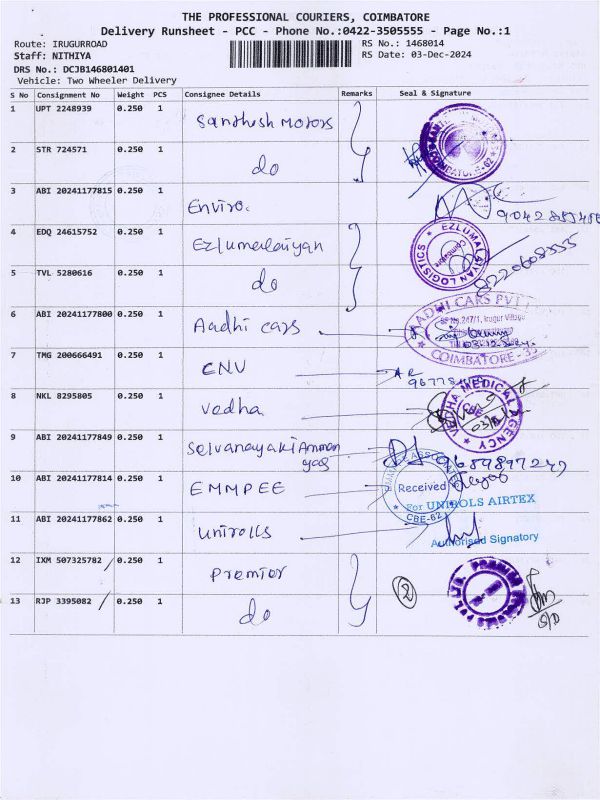 THE PROFESSIONAL COURIERS, COIMBATORE
Delivery Runsheet - PCC - Phone No.:0422-3505555 - Page No.:1
Route: IRUGURROAD RS No.: 1468014
Staff: NITHIYA RS Date: 03-Dec-2024
DRS No.: DCJB146801401
Vehicle: Two Wheeler Delivery
S No Consignment No Weight PCS Consignee Details Remarks Seal & Signature
1 UPT 2248939 0.250 1 Santhosh Motors
2 STR 724571 0.250 1 do
3 ABI 20241177815 0.250 1 Enviro.
4 EDQ 24615752 0.250 1 Ezlumalaiyan
EZLUMALAIYAN LOGISTICS
Coimbatore
8220608555
5 TVL 5280616 0.250 1 do
6 ABI 20241177800 0.250 1 Aadhi cars
AADHI CARS PVT
SF No.247/1, Irugur Village
COIMBATORE - 35
7 TMG 200666491 0.250 1 CNV
8 NKL 8295805 0.250 1 Vedha
VEDHA MEDICAL AGENCY
CBE
9 ABI 20241177849 0.250 1 Selvanayaki Amman
gas
9689897247
10 ABI 20241177814 0.250 1 EMMPEE
Received
CBE-62
For UNIROLS AIRTEX
11 ABI 20241177862 0.250 1 Unirolls
Authorised Signatory
12 IXM 507325782 / 0.250 1 Premier
13 RJP 3395082 / 0.250 1 do
2